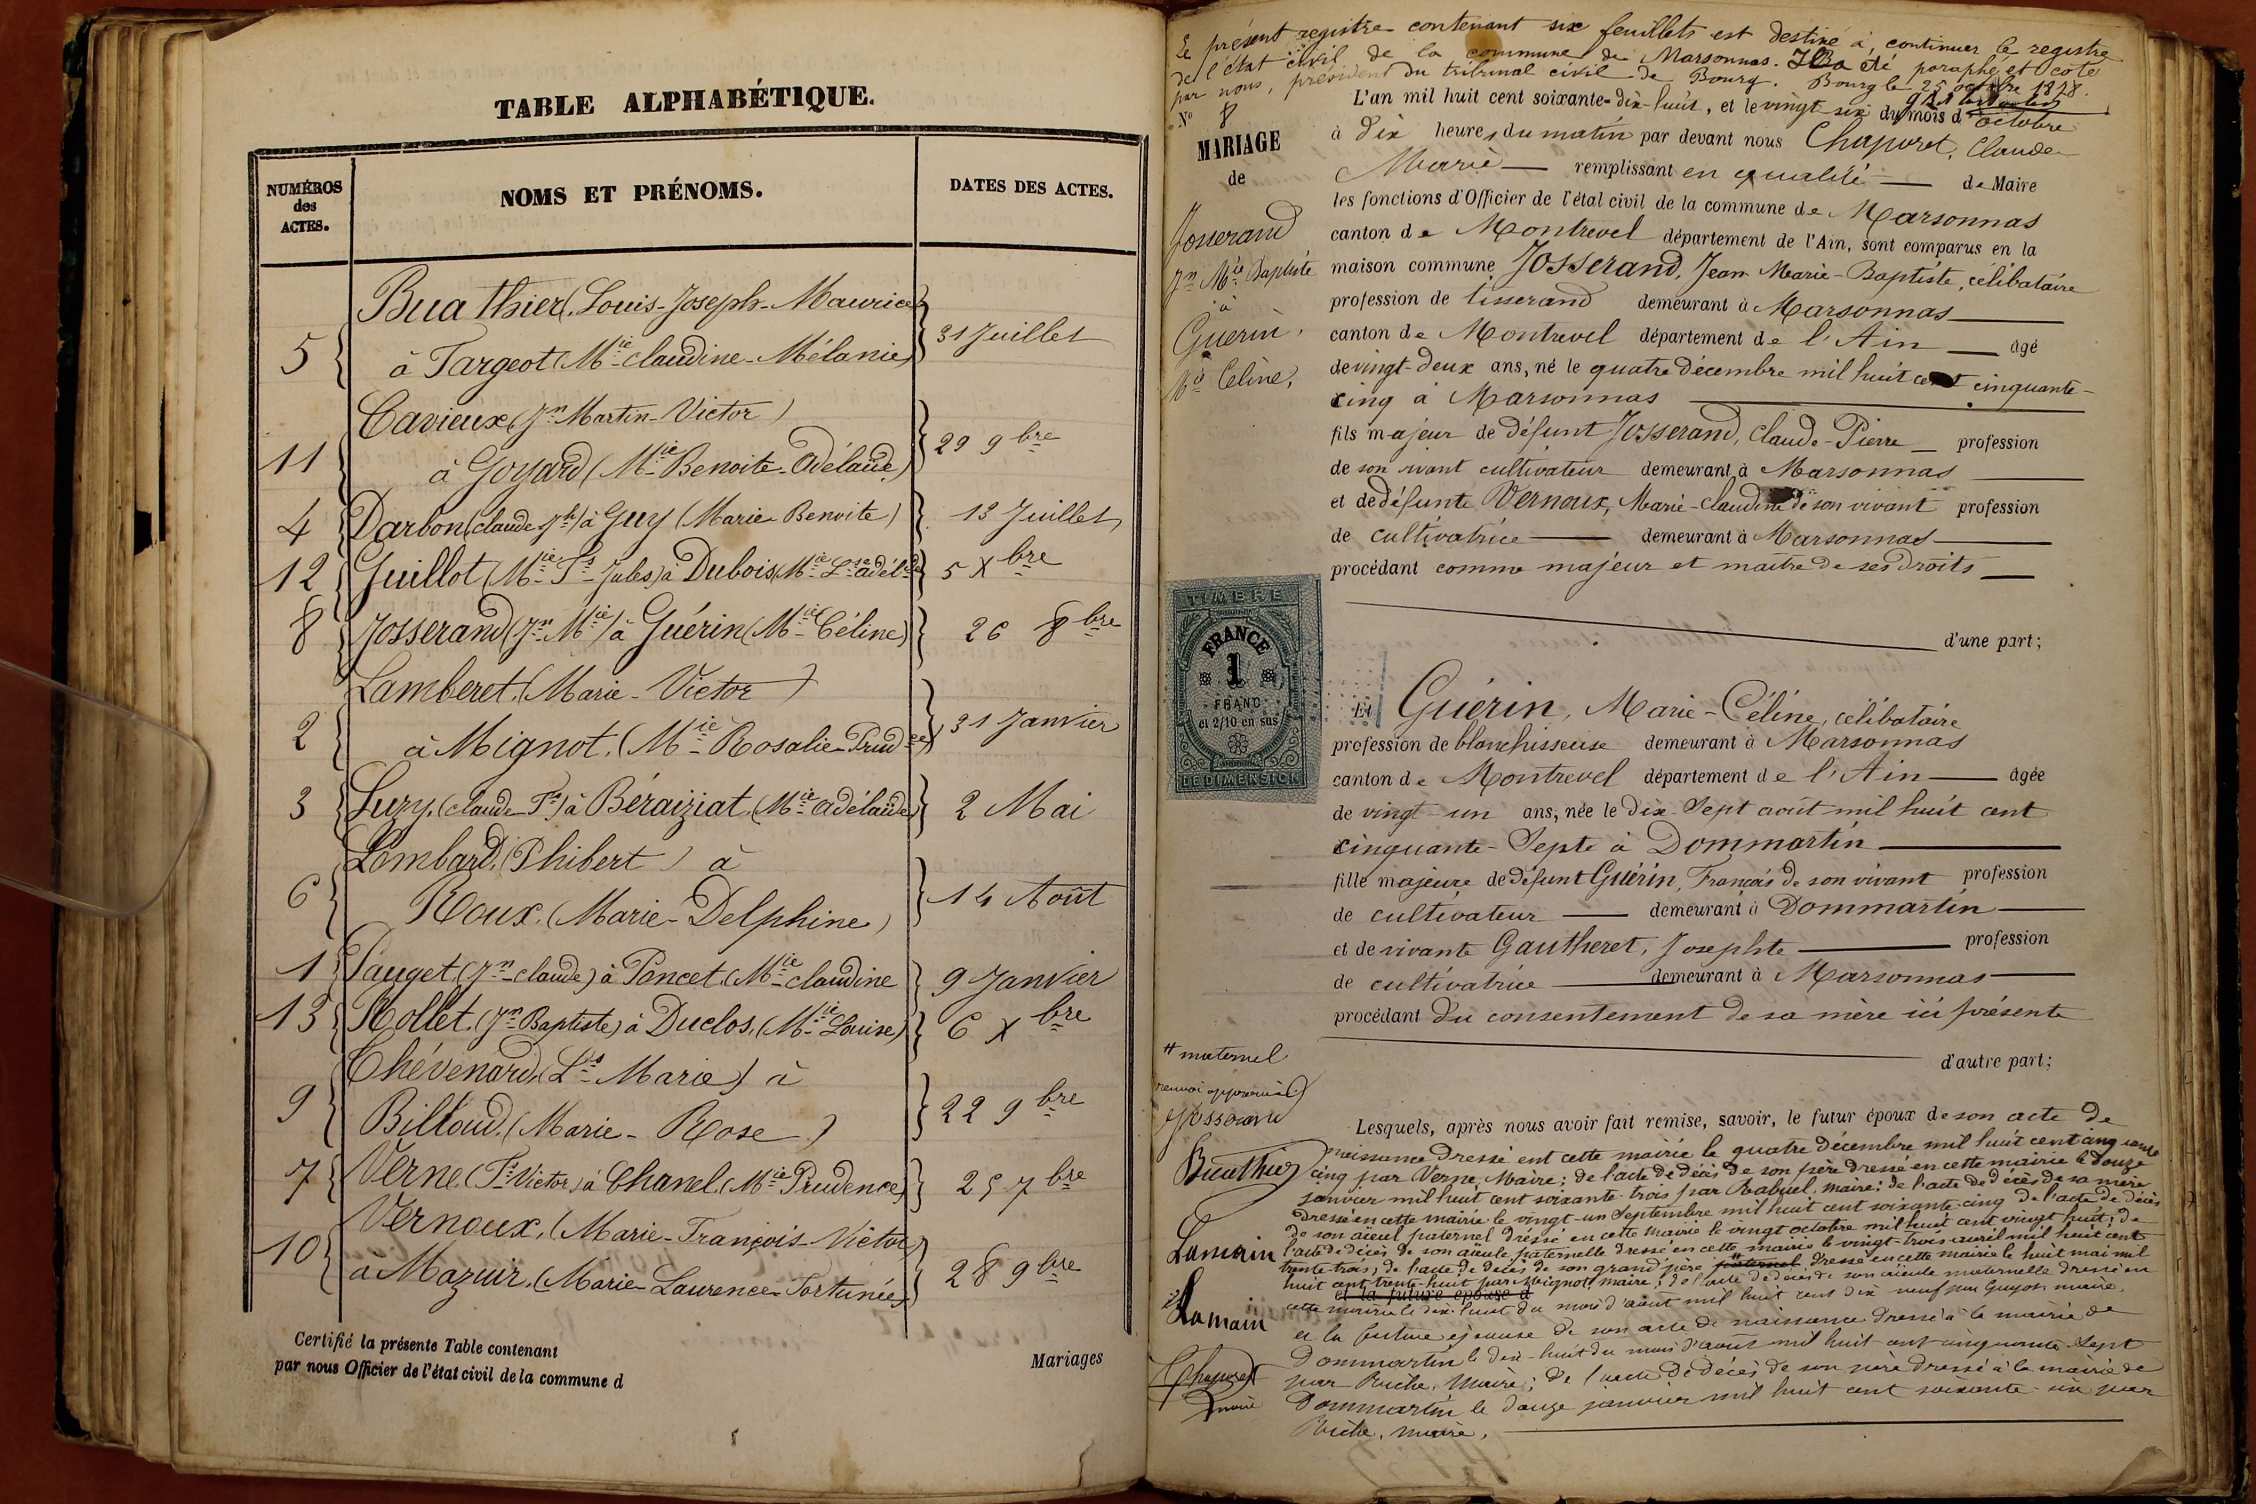 TABLE ALPHABÉTIQUE.
NUMÉROS des ACTES.
NOMS ET PRÉNOMS.
DATES DES ACTES.
Buathier (Louis-Joseph-Maurice)
5 à Targeot (Mie claudine-Mélanie) 31 Juillet
Cavieux (Jn Martin-Victor)
11 à Goyard (Mie Benoite-Adélaïde) 29 9bre
4 Darbon (claude Jh) à Guy (Marie Benoite) 13 Juillet
12 Guillot (Mie Fs Jules) à Dubois (Mie Lse adélde) 5 Xbre
8 Josserand (Jn Mie) à Guérin (Mie Céline) 26 8bre
Lamberet, (Marie-Victor)
2 à Mignot, (Mie Rosalie-Prudce) 31 Janvier
3 Luzy, (claude Fs) à Béraiziat, (Mie adélaïde) 2 Mai
Lombard, (Phibert) à
6 Roux, (Marie-Delphine) 14 Août
1 Pauget (Jn claude) à Poncet (Mie claudine 9 Janvier
13 Rollet, (Jn Baptiste) à Duclos, (Mie Louise) 6 Xbre
Chévenard, (Ls Marie) à
9 Billoud, (Marie-Rose) 22 9bre
7 Verne (Fs Victor) à Chanel, (Mie Prudence) 25 7bre
Vernoux, (Marie-François-Victor
10 à Mazuir, (Marie-Laurence-Fortunée) 28 9bre
Certifié la présente Table contenant
par nous Officier de l'état civil de la commune d
Mariages
Le présent registre contenant six feuillets est destiné à continuer le registre
de l'état civil de la commune de Marsonnas. Il a été paraphé et coté
par nous, président du tribunal civil de Bourg. Bourg le 25 octobre 1878.
No 8
MARIAGE
de
Josserand
Jn Mie Baptiste
à
Guerin,
Mie Celine,
L'an mil huit cent soixante-dix-huit, et le vingt six du mois d'octobre
à dix heures du matin par devant nous Chaporet, Claude
Marie remplissant en qualité de Maire
les fonctions d'Officier de l'état civil de la commune de Marsonnas
canton de Montrevel département de l'Ain, sont comparus en la
maison commune Josserand, Jean Marie-Baptiste, célibataire
profession de tisserand demeurant à Marsonnas
canton de Montrevel département de l'Ain âgé
de vingt-deux ans, né le quatre décembre mil huit cent cinquante-
cinq à Marsonnas
fils majeur de défunt Josserand, Claude-Pierre profession
de son vivant cultivateur demeurant à Marsonnas
et de défunte Vernoux, Marie-Claudine de son vivant profession
de cultivatrice demeurant à Marsonnas
procédant comme majeur et maître de ses droits
d'une part;
TIMBRE
FRANCE
1
FRANC
et 2/10 en sus
DE DIMENSION
Et Guérin, Marie-Céline, célibataire
profession de blanchisseuse demeurant à Marsonnas
canton de Montrevel département de l'Ain âgée
de vingt-un ans, née le dix-sept août mil huit cent
cinquante-Septe à Dommartin
fille majeure de défunt Guérin, François de son vivant profession
de cultivateur demeurant à Dommartin
et de vivante Gautheret, Josephte profession
de cultivatrice demeurant à Marsonnas
procédant du consentement de sa mère ici présente
d'autre part;
# maternel
renvoi approuvé
Josserand
Buathier
Lamain
Lamain
Chaporet
maire
Lesquels, après nous avoir fait remise, savoir, le futur époux de son acte de
naissance dressé ent cette mairie le quatre décembre mil huit cent cinquante
cinq par Verne, Maire; de l'acte de décès de son père dressé en cette mairie le douze
janvier mil huit cent soixante-trois par Rabuel, maire; de l'acte de décès de sa mère
dressé en cette mairie le vingt-un Septembre mil huit cent soixante-cinq de l'acte de décès
de son aïeul paternel dressé en cette mairie le vingt octobre mil huit cent vingt huit; de
l'acte de décès de son aïeule paternelle dressé en cette mairie le vingt-trois avril mil huit cent
trente trois; de l'acte de décès de son grand père paternel # dressé en cette mairie le huit mai mil
huit cent trente-huit par Meignot, maire; de l'acte de décès de son aïeule maternelle dressé en
et la future épouse d
cette mairie le dix-huit du mois d'août mil huit cent dix neuf par Guyot, maire.
et la future épouse de son acte de naissance dressé à la mairie de
Dommartin le dix-huit du mois d'août mil huit cent cinquante-sept
par Riche, Maire; de l'acte de décès de son père dressé à la mairie de
Dommartin le douze janvier mil huit cent soixante six par
Riche, maire,